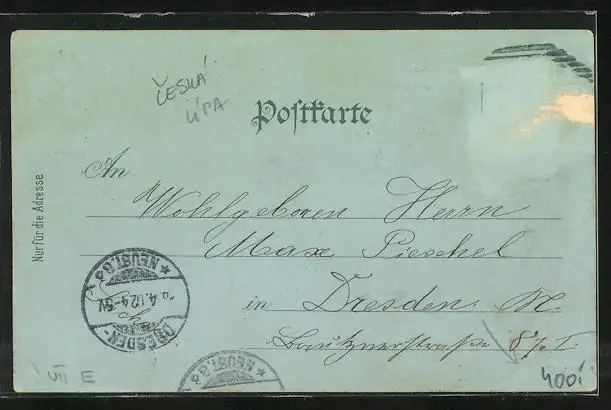 ČESKÁ
LÍPA
Postkarte
Nur für die Adresse
An
Wohlgeboren Herrn
Max Pieschel
in Dresden N.
Bautznerstraße 87. I.
DRESDEN-
NEUST. 6
4.02 4-5V
NEUST. 6
VII E
400,